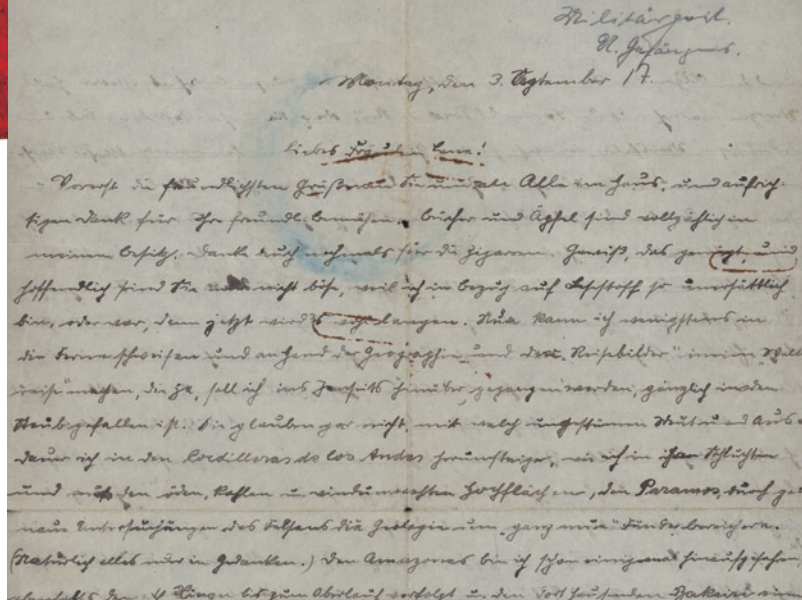 Militärpost.
N. Gefängnis.
Montag, den 3. September 17.
Liebes Fräulein Lene!
Vorerst die freundlichsten Grüße an Sie und alle im Haus, und aufrich-
tigen Dank für Ihre freundl. Bemühen. Bücher und Äpfel sind vollzählich in
meinem Besitz. Danke auch nochmals für die Zigarren. Gewiß, das genügt, und
hoffendlich sind Sie nicht böse, weil ich in Bezug auf Lesestoff so unersättlich
bin, oder war, denn jetzt wird's langen. Nun kann ich wenigstens in
die Ferne schweifen und anhand der Geographie und der „Reisebilder" meine Welt
reise machen, die ja, soll ich ins Jenseits hinüber gegangen werden, gänzlich in den
Staub gefallen ist. Sie glauben gar nicht, mit welch ungestümen Mut und Aus-
dauer ich in den Cordilleras de los Andes herumsteige, wie ich in ihren Schluchten
und auf den öden, kahlen u. windumwehten Hochflächen, den Paramos, durch ge-
naue Untersuchungen des Felsens die Geologie um ganz neue Funde bereichere.
(Natürlich alles nur in Gedanken.) Den Amazonas bin ich schon einigemal hinaufgefahren,
den Xingu bis zum Oberlauf verfolgt u. den dort hausenden Bakairi